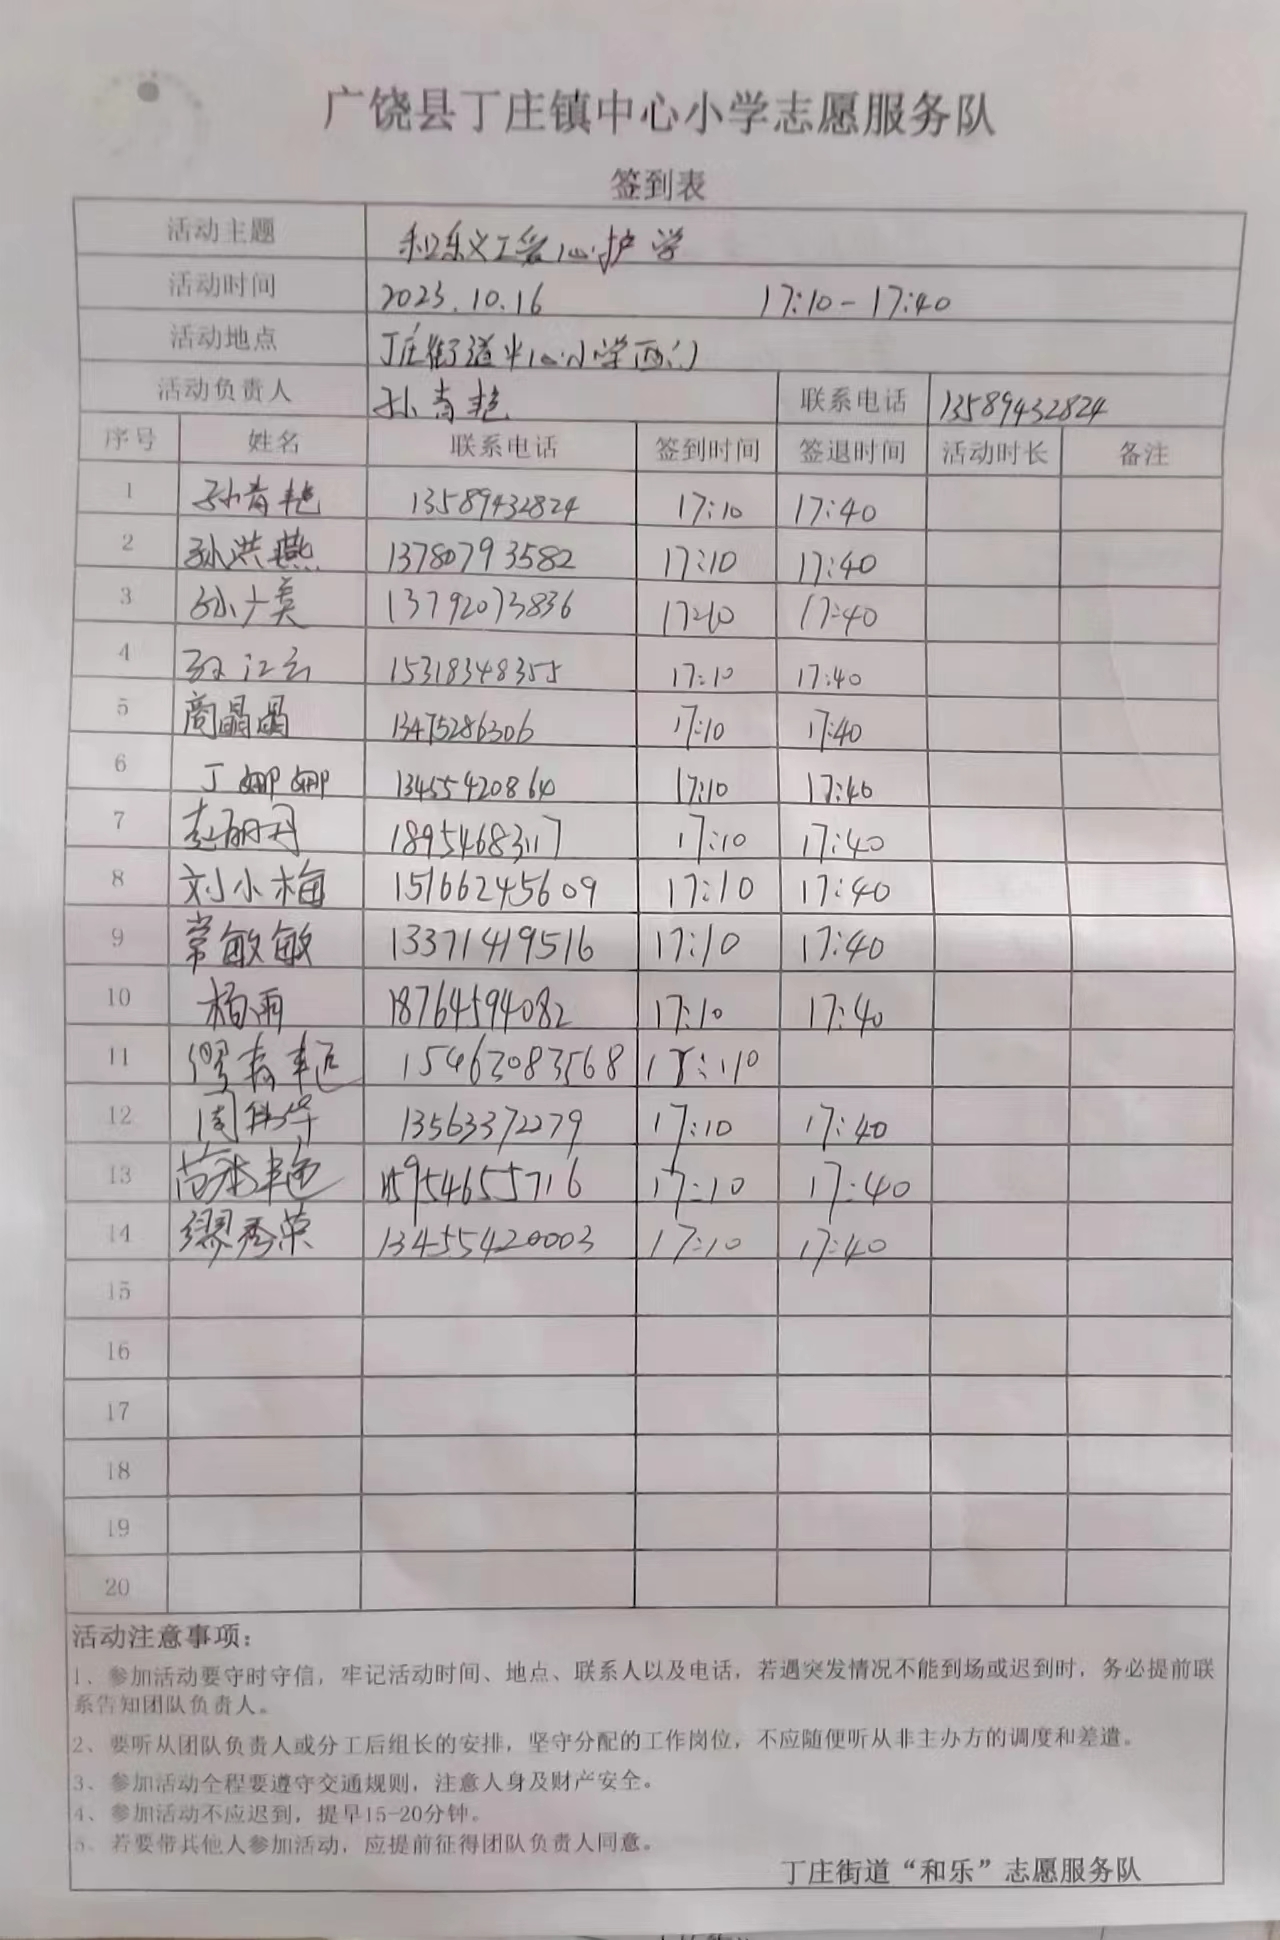 广饶县丁庄镇中心小学志愿服务队
签到表
活动主题 和乐义工爱心护学
活动时间 2023.10.16 17:10-17:40
活动地点 丁庄街道中心小学西门
活动负责人 孙青艳 联系电话 13589432824
序号 姓名 联系电话 签到时间 签退时间 活动时长 备注
1 孙青艳 13589432824 17:10 17:40
2 孙洪燕 13780793582 17:10 17:40
3 孙美 13792073836 17:10 17:40
4 江云 15318348355 17:10 17:40
5 商晶晶 13475286306 17:10 17:40
6 丁娜娜 13455420860 17:10 17:40
7 赵丽丹 18954683117 17:10 17:40
8 刘小梅 15166245609 17:10 17:40
9 常敏敏 13371419516 17:10 17:40
10 杨雨 18764594082 17:10 17:40
11 缪春艳 15463083568 17:10
12 周华 13563372279 17:10 17:40
13 苗艳 15954655716 17:10 17:40
14 缪秀荣 13455420003 17:10 17:40
15
16
17
18
19
20
活动注意事项：
1、参加活动要守时守信，牢记活动时间、地点、联系人以及电话，若遇突发情况不能到场或迟到时，务必提前联
系告知团队负责人。
2、要听从团队负责人或分工后组长的安排，坚守分配的工作岗位，不应随便听从非主办方的调度和差遣。
3、参加活动全程要遵守交通规则，注意人身及财产安全。
4、参加活动不应迟到，提早15-20分钟。
5、若要带其他人参加活动，应提前征得团队负责人同意。
丁庄街道“和乐”志愿服务队